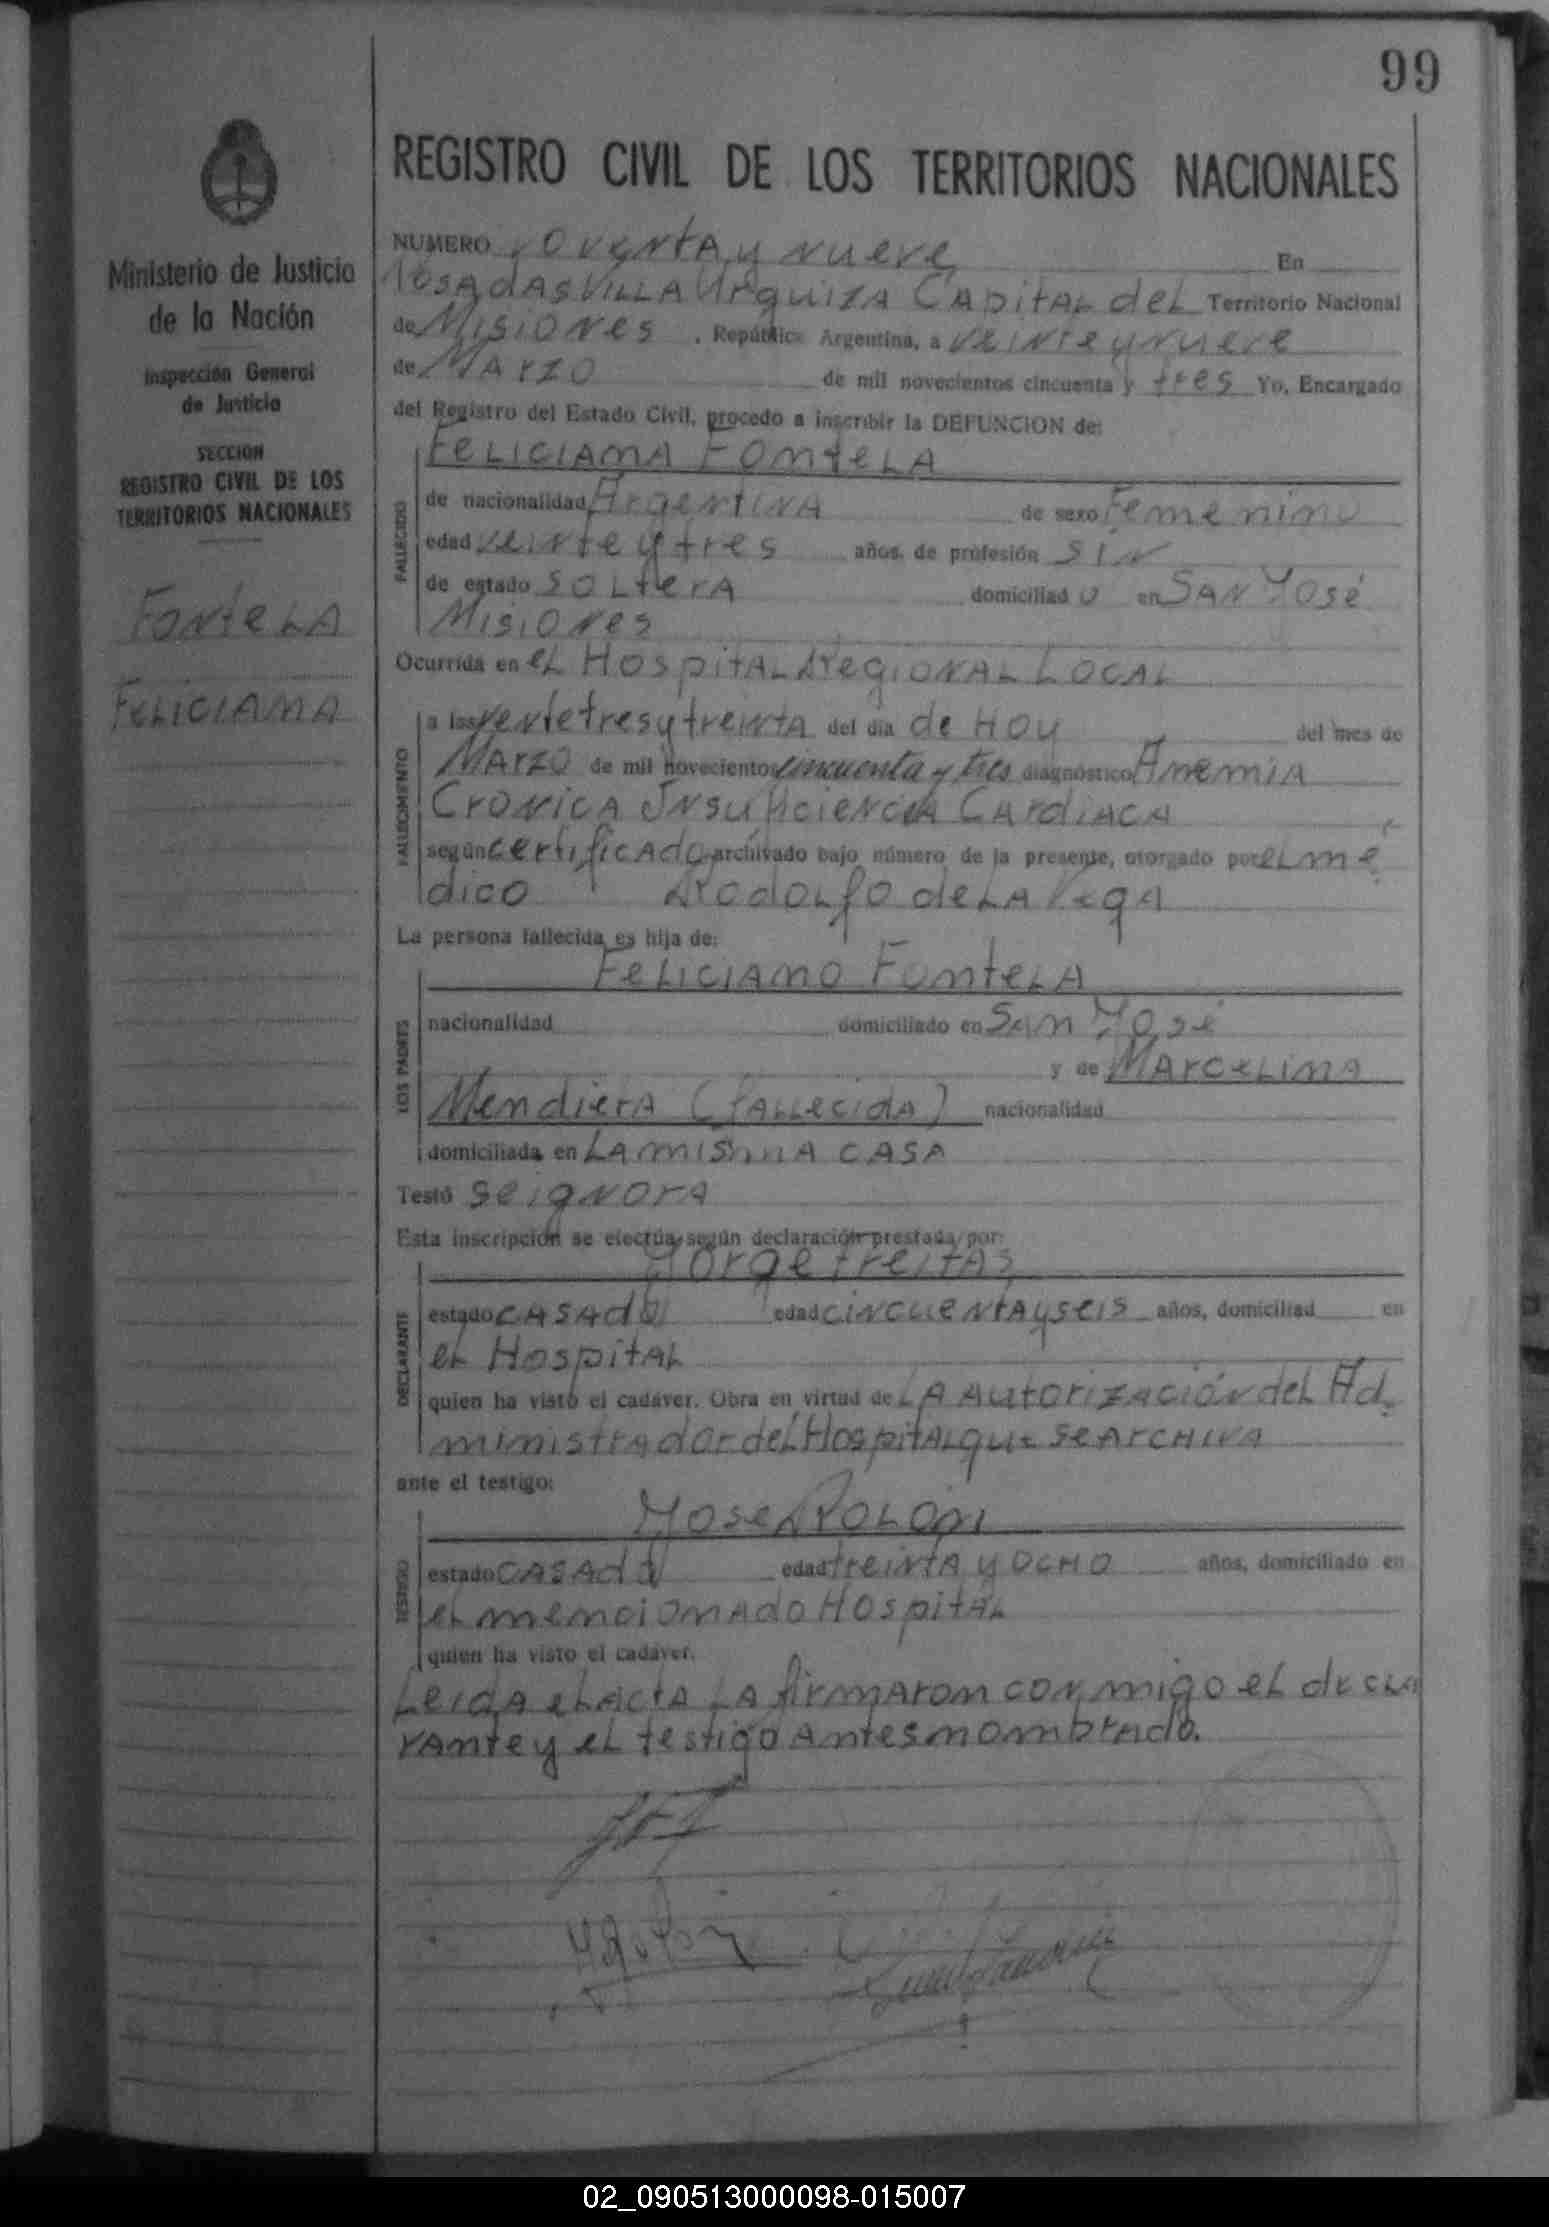 99
REGISTRO CIVIL DE LOS TERRITORIOS NACIONALES
Ministerio de Justicia
de la Nación
Inspección General
de Justicia
SECCION
REGISTRO CIVIL DE LOS
TERRITORIOS NACIONALES
FonteLA
FeLICIAMA
NUMERO Noventa y nueve En
Posadas Villa Urquiza Capital del Territorio Nacional
de Misiones, República Argentina, a veinte y nueve
de Marzo de mil novecientos cincuenta y tres Yo, Encargado
del Registro del Estado Civil, procedo a inscribir la DEFUNCION de:
Feliciama Fontela
FALLECIDO
de nacionalidad Argentina de sexo Femenino
edad veinte y tres años, de profesión sin
de estado soltera domiciliado en San José
Misiones
Ocurrida en el Hospital Regional Local
FALLECIMIENTO
a las ventetres y treinta del día de Hoy del mes de
Marzo de mil novecientos cincuenta y tres diagnóstico Anemia
Cronica Insuficiencia Cardiaca
según certificado archivado bajo número de la presente, otorgado por el mé
dico Rodolfo de la Vega
La persona fallecida es hija de:
Feliciamo Fontela
LOS PADRES
nacionalidad domiciliado en San José
y de Marcelina
Mendieta (fallecida) nacionalidad
domiciliada en la misma casa
Testó se ignora
Esta inscripción se efectúa según declaración prestada por:
Jorge freitas
DECLARANTE
estado casado edad cincuenta y seis años, domiciliad en
el Hospital
quien ha visto el cadáver. Obra en virtud de la autorización del Ad
ministrador del Hospital que se archiva
ante el testigo:
José Poloni
TESTIGO
estado casado edad treinta y ocho años, domiciliado en
el mencionado Hospital
quien ha visto el cadáver.
Leida el acta la firmaron conmigo el decla
rante y el testigo antes nombrado.
02_090513000098-015007